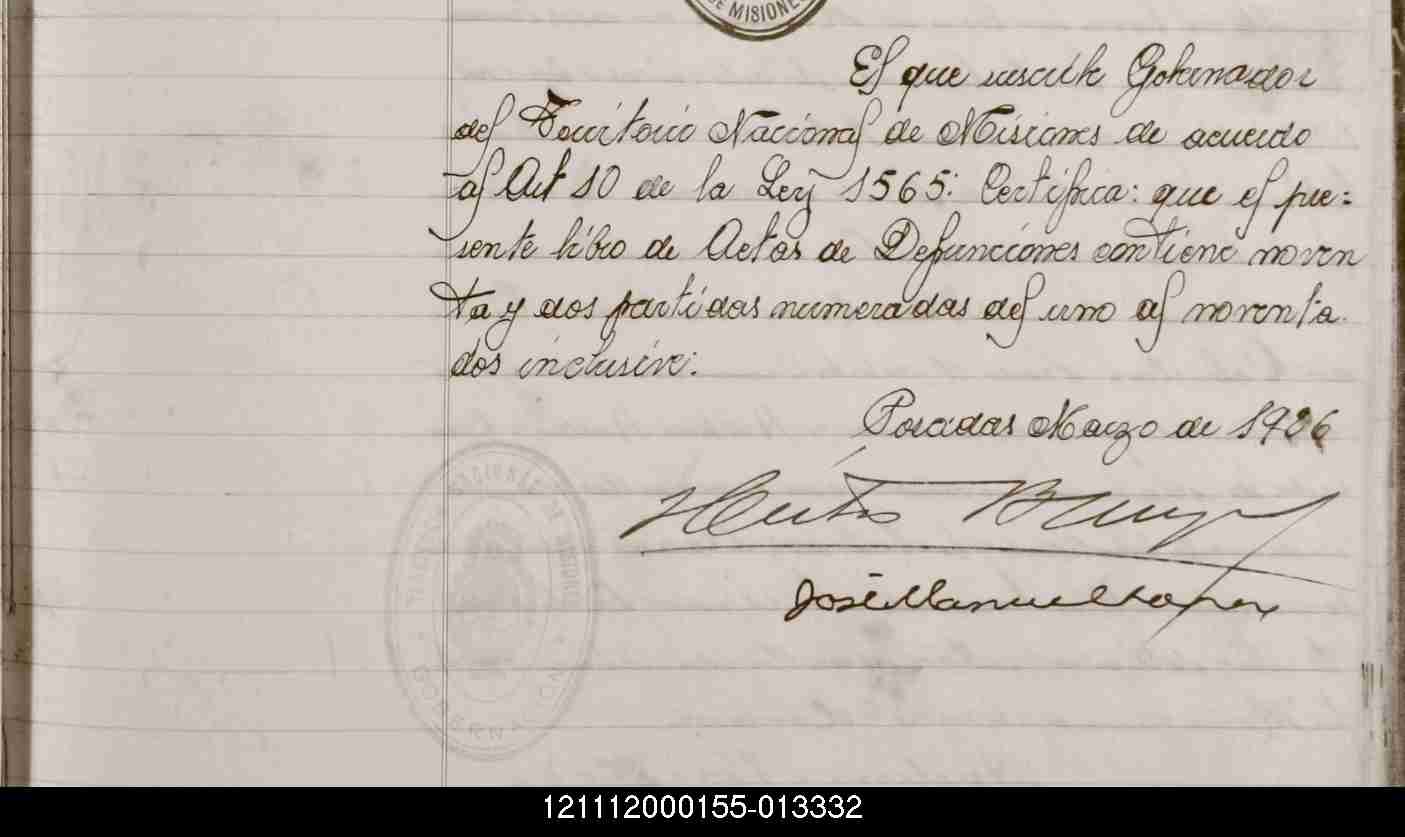 DE MISIONES
El que suscribe Gobernador
del Territorio Nacional de Misiones de acuerdo
al Art 10 de la Ley 1565: Certifica: que el pre=
sente libro de Actas de Defunciones contiene noven
ta y dos partidas numeradas del uno al noventa
dos inclusive:
Posadas Marzo de 1926
José Manuel
121112000155-013332